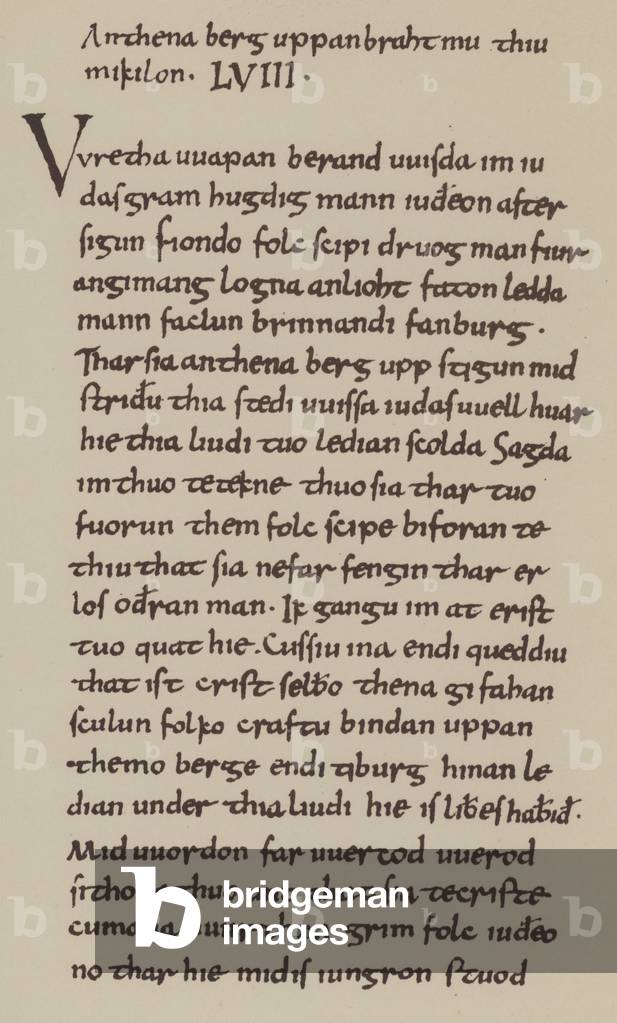 Anthena berg uppan braht mu thiu
mikilon. LVIII.
Vvretha uuapan berand uuiſda im iu
daſ gram hugdig mann iuđeon after
ſigun fiondo folc ſcipi druog man fiur
angimang logna anlioht faton ledda
mann faclun brinnandi fanburg.
Thar ſia anthena berg upp ſtigun mid
ſtriđu thia ſtedi uuiſſa iudaſ uuell huar
hie thia liudi tuo ledian ſcolda Sagda
im thuo te tekne thuo ſia thar tuo
fuorun them folc ſcipe biforan te
thiu that ſia ne far fengin thar er
loſ ođran man. Ik gangu im at eriſt
tuo quat hie. Cuſſiu ina endi queddiu
that iſt criſt ſelƀo thena gi fahan
ſculun folko craftu bindan uppan
themo berge endi tiburg hinan le
dian under thia liudi hie iſ liƀeſ haƀid.
Mid uuordon far uuercod uuerod
tecriſte
grim folc iuđeo
no thar hie mid iſ iungron ſtuod
bridgeman
images